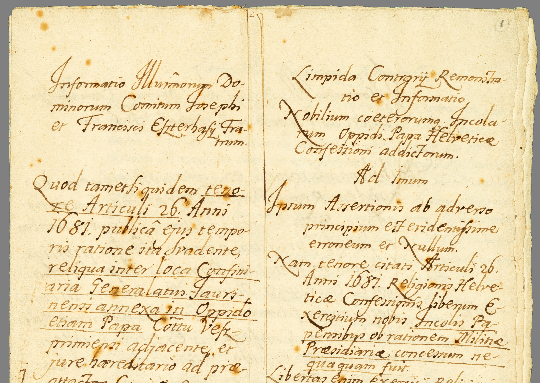 Informatio Illustrissimorum Do-
minorum Comitum Josephi
et Francisci Eszterhasy Fra-
trum.
Quod tametsi quidem teno-
re Articuli 26. Anni
1681. publica ejus tempo-
ris ratione ita svadente,
reliqua inter loca Confini-
aria Generalatui Jauri-
nensi annexa in Oppido
etiam Papa Cottui Vesz-
primensi adjacente, et
jure haereditario ad prae-
Limpida Contrarij Remonstra-
tio et Informatio
Nobilium coeterorumq Incola
rum Oppidi Papa Helveticae
Confessioni addictorum.
Ad Imum
Ipsum Assertionis ab adverso
principium est evidentissime
erroneum et Nullum.
Nam tenore citati Articuli 26.
Anni 1681. Religionis Helve-
ticae Confessionis liberum E-
xercitium nobis Incolis Pa-
pensibus ob rationem Militiae
Praesidiariae concessum ne-
quaquam fuit.
Libertas enim Exercij